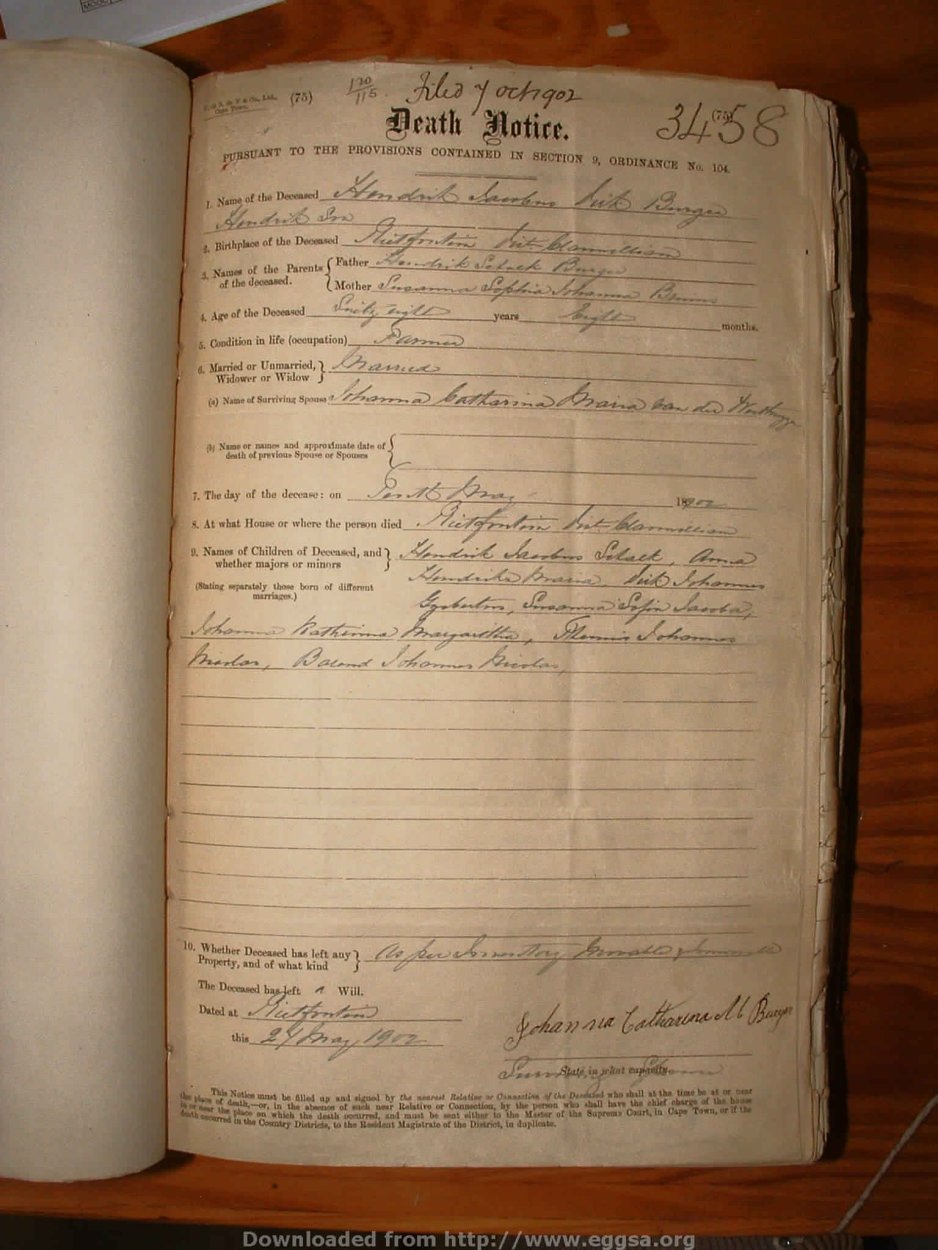 (75) 120/115. Filed 7 Oct 1902
Cape Town.
Death Notice.
(75)
3458
PURSUANT TO THE PROVISIONS CONTAINED IN SECTION 9, ORDINANCE No. 104.
1. Name of the Deceased Hendrik Jacobus Burger
Hendrik
2. Birthplace of the Deceased Rietfontein Clanwilliam
3. Names of the Parents of the deceased. { Father Hendrik Schalk Burger
{ Mother Susanna Sophia Johanna
4. Age of the Deceased eight years Eight months.
5. Condition in life (occupation) Farmer
6. Married or Unmarried, Widower or Widow } Married
(a) Name of Surviving Spouse Johanna Catharina Maria van der
(b) Name or names and approximate date of death of previous Spouse or Spouses {
7. The day of the decease: on Tenth May 1902
8. At what House or where the person died Rietfontein Clanwilliam
9. Names of Children of Deceased, and whether majors or minors } Hendrik Jacobus Schalk, Anna
(Stating separately those born of different marriages.) Hendrika Maria, Johannes
Gysbertus, Susanna Sofia Jacoba,
Johanna Katherina Margaritha, Johannes
Nicolas, Johannes Nicolas,
10. Whether Deceased has left any Property, and of what kind } As per Inventory Movable
The Deceased has left a Will.
Dated at Rietfontein
this 24 May 1902
Johanna Catharina M Burger
Surviving Spouse
State in what capacity.
This Notice must be filled up and signed by the nearest Relative or Connection of the Deceased who shall at the time be at or near
the place of death,—or, in the absence of such near Relative or Connection, by the person who shall have the chief charge of the house
in or near the place on which the death occurred, and must be sent either to the Master of the Supreme Court, in Cape Town, or if the
death occurred in the Country Districts, to the Resident Magistrate of the District, in duplicate.
Downloaded from http://www.eggsa.org